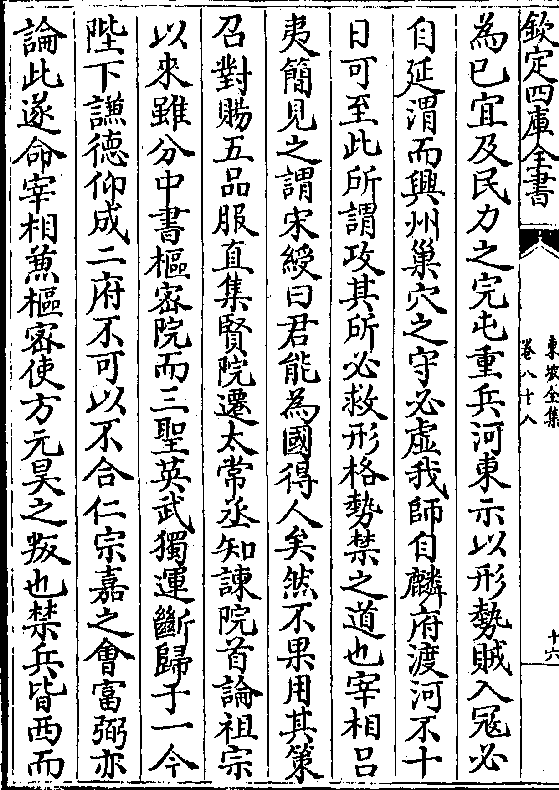 欽定四庫全書
東坡全集
卷八十八
十六
為已宜及民力之完屯重兵河東示以形勢賊入寇必
自延渭而興州巢穴之守必虛我師自麟府渡河不十
日可至此所謂攻其所必救形格勢禁之道也宰相吕
夷簡見之謂宋綬曰君能為國得人矣然不果用其策
召對賜五品服直集賢院遷太常丞知諫院首論祖宗
以來雖分中書樞宻院而三聖英武獨運斷歸于一今
陛下謙徳仰成二府不可以不合仁宗嘉之會富弼亦
論此遂命宰相兼樞宻使方元昊之叛也禁兵皆西而